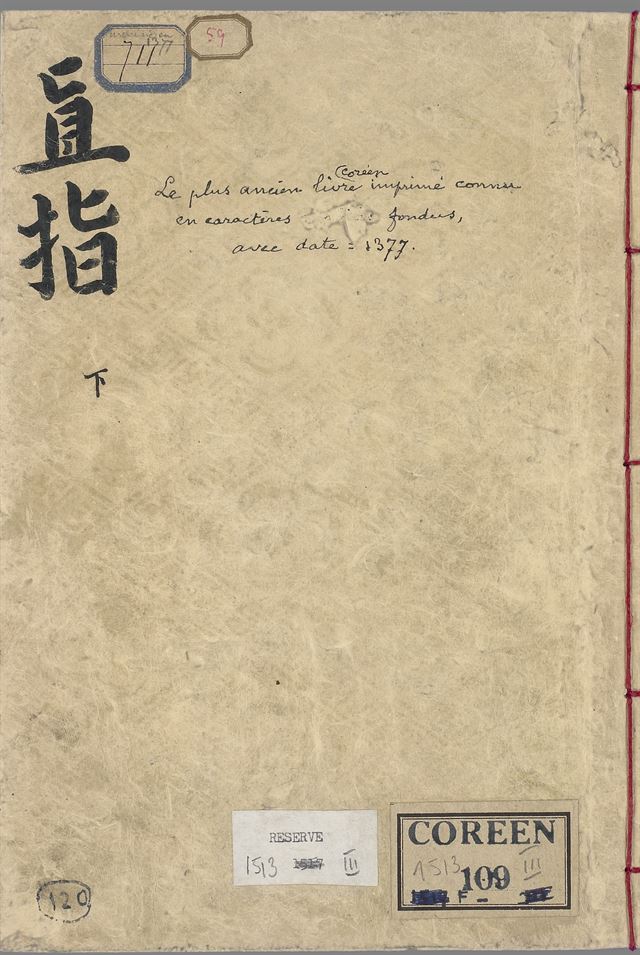 7177
59
直指
下
Le plus ancien livre Coréen imprimé connu
en caractères fondus,
avec date = 1377.
RESERVE
1513 1517 III
COREEN
1513 III
109
F -
120